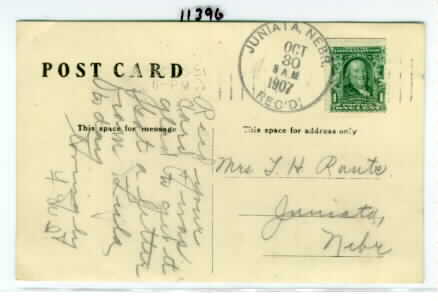 11396
JUNIATA, NEBR.
OCT
30
8 AM
1907
REC'D.
POST CARD
This space for message
This space for address only
Recd your
card & was
glad to get it
Got a letter
from Lyda
to day
Mrs T. H. Rante.
Juniata,
Nebr